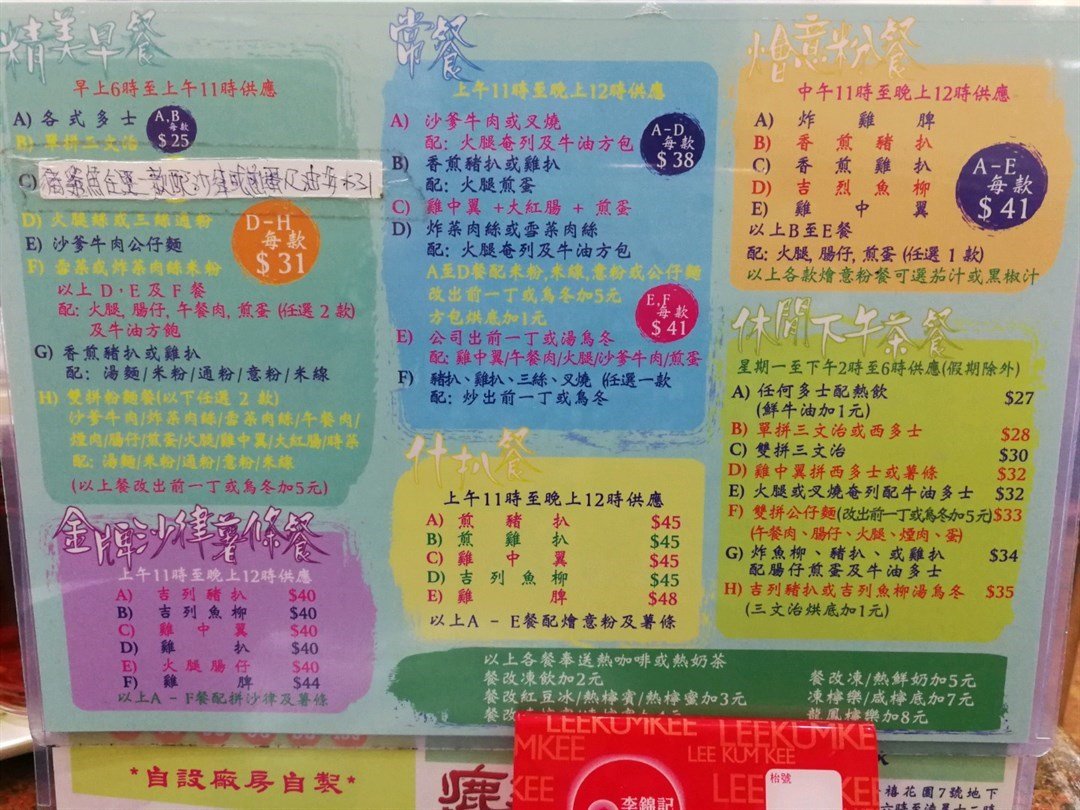 精美早餐
早上6時至上午11時供應
A) 各式多士
B) 單拼三文治
A,B
每款
$25
C)
D) 火腿絲或三絲通粉
E) 沙爹牛肉公仔麵
F) 雪菜或炸菜肉絲米粉
D-H
每款
$31
以上 D,E 及 F 餐
配: 火腿, 腸仔, 午餐肉, 煎蛋 (任選 2 款)
及牛油方飽
G) 香煎豬扒或雞扒
配: 湯麵/米粉/通粉/意粉/米線
H) 雙拼粉麵餐(以下任選 2 款)
沙爹牛肉/炸菜肉絲/雪菜肉絲/午餐肉/
煙肉/腸仔/煎蛋/火腿/雞中翼/大紅腸/時菜
配: 湯麵/米粉/通粉/意粉/米線
(以上餐改出前一丁或烏冬加5元)
金牌沙律薯條餐
上午11時至晚上12時供應
A) 吉列豬扒 $40
B) 吉列魚柳 $40
C) 雞中翼 $40
D) 雞扒 $40
E) 火腿腸仔 $40
F) 雞脾 $44
以上A - F餐配拼沙律及薯條
常餐
上午11時至晚上12時供應
A) 沙爹牛肉或叉燒
配: 火腿奄列及牛油方包
B) 香煎豬扒或雞扒
配: 火腿煎蛋
C) 雞中翼 +大紅腸 + 煎蛋
D) 炸菜肉絲或雪菜肉絲
配: 火腿奄列及牛油方包
A-D
每款
$38
A至D餐配米粉,米線,意粉或公仔麵
改出前一丁或烏冬加5元
方包烘底加1元
E,F
每款
$41
E) 公司出前一丁或湯烏冬
配: 雞中翼/午餐肉/火腿/沙爹牛肉/煎蛋
F) 豬扒、雞扒、三絲、叉燒 (任選一款
配: 炒出前一丁或烏冬
什扒餐
上午11時至晚上12時供應
A) 煎豬扒 $45
B) 煎雞扒 $45
C) 雞中翼 $45
D) 吉列魚柳 $45
E) 雞脾 $48
以上A - E餐配燴意粉及薯條
燴意粉餐
中午11時至晚上12時供應
A) 炸雞脾
B) 香煎豬扒
C) 香煎雞扒
D) 吉烈魚柳
E) 雞中翼
A-E
每款
$41
以上B至E餐
配: 火腿, 腸仔, 煎蛋 (任選 1 款)
以上各款燴意粉餐可選茄汁或黑椒汁
休閒下午茶餐
星期一至下午2時至6時供應(假期除外)
A) 任何多士配熱飲 $27
(鮮牛油加1元)
B) 單拼三文治或西多士 $28
C) 雙拼三文治 $30
D) 雞中翼拼西多士或薯條 $32
E) 火腿或叉燒奄列配牛油多士 $32
F) 雙拼公仔麵(改出前一丁或烏冬加5元)$33
(午餐肉、腸仔、火腿、煙肉、蛋)
G) 炸魚柳、豬扒、或雞扒 $34
配腸仔煎蛋及牛油多士
H) 吉列豬扒或吉列魚柳湯烏冬 $35
(三文治烘底加1元)
以上各餐奉送熱咖啡或熱奶茶
餐改凍飲加2元
餐改紅豆冰/熱檸賓/熱檸蜜加3元
餐改
餐改凍/熱鮮奶加5元
凍檸樂/咸檸底加7元
龍鳳檸樂加8元
*自設廠房自製*
LEEKUMKEE LEEKUMKEE
MKEE LEE KUM KEE
李錦記
枱號
禧花園7號地下